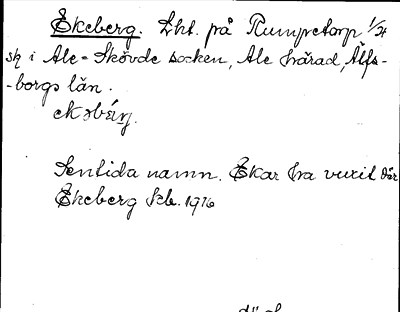 Ekeberg. Lht. på Rumpetorp 1/24
sk i Ale-Skövde socken, Ale härad, Älfs-
-borgs län.
Sentida namn. Ekar ha vuxit där
Ekeberg Skb. 1916